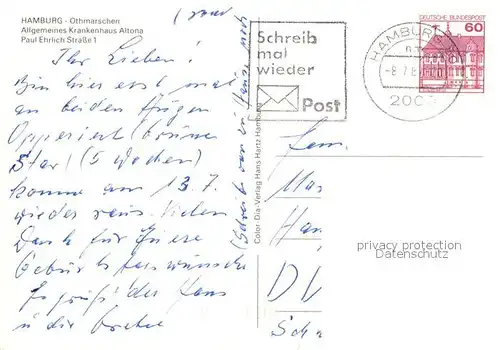 HAMBURG - Othmarschen
Allgemeines Krankenhaus Altona
Paul Ehrlich Straße 1
Ihr Lieben!
Bin hier erst mal
an beiden Augen
Opperiert (grüner
Star) (5 Wochen)
komme am 13.7.
wieder raus. Vielen
Dank für Euere
Geburtstagswünsche
Es grüßt der Hans
u die Grete
(Schreibe von zu Hause noch
Color-Dia-Verlag Hans Hartz Hamburg
Schreib
mal
wieder
Post
HAMBURG
-8.7.8
2000
DEUTSCHE BUNDESPOST
60
Fam.
Ha
D
Sch
privacy protection
Datenschutz